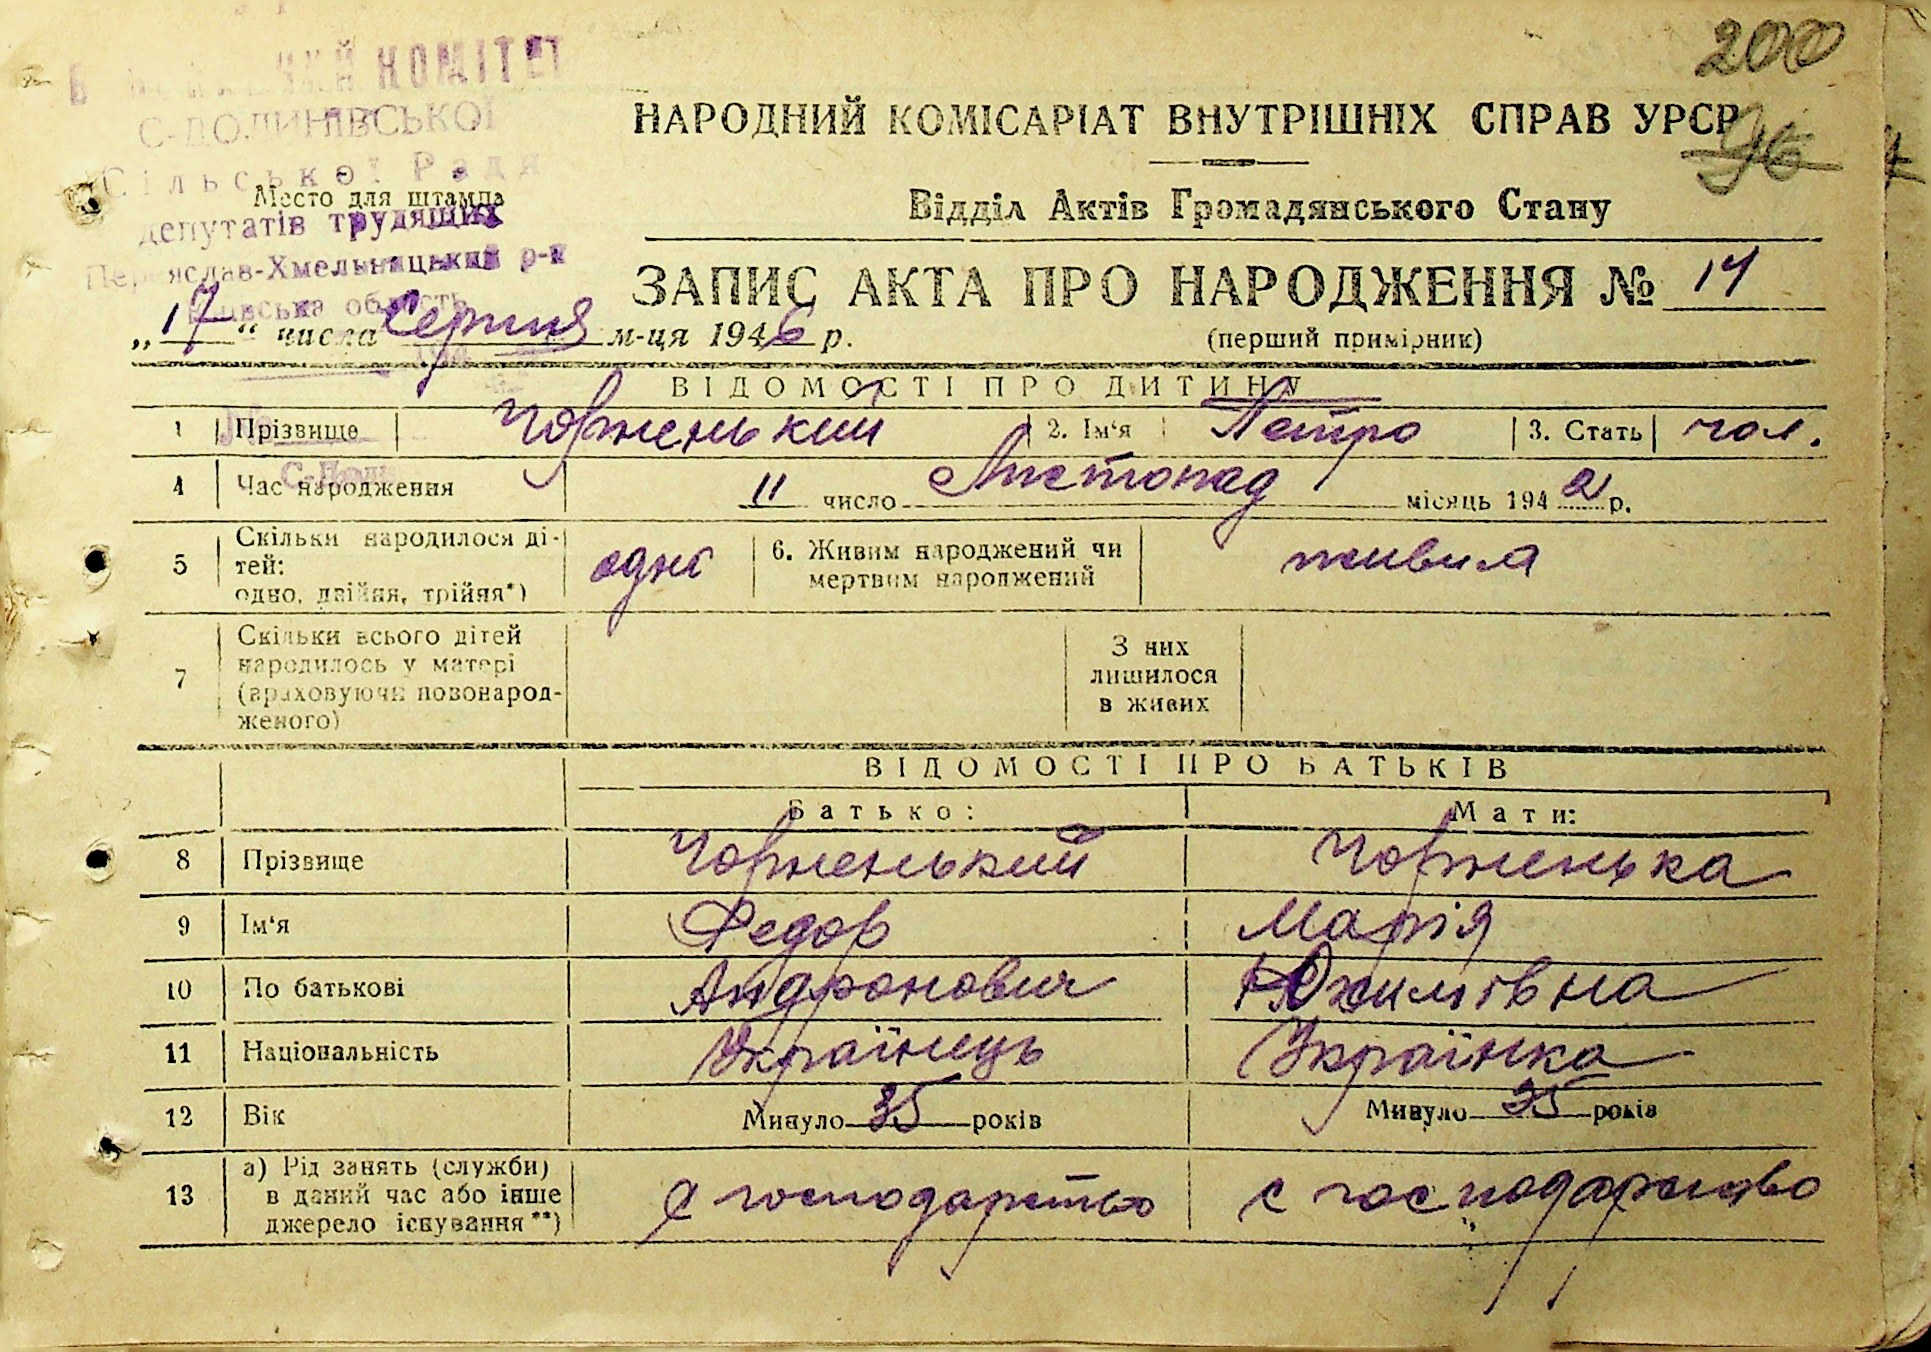 200
КОМІТЕТ
С-ДОЛИНІВСЬКОЇ
Сільської Ради
депутатів трудящих
Переяслав-Хмельницький р-н
Київська область
Место для штампа
НАРОДНИЙ КОМІСАРІАТ ВНУТРІШНІХ СПРАВ УРСР
96
Відділ Актів Громадянського Стану
ЗАПИС АКТА ПРО НАРОДЖЕННЯ № 14
„17“ числа Серпня м-ця 1946 р.
(перший примірник)
ВІДОМОСТІ ПРО ДИТИНУ
1 Прізвище Чорненький 2. Ім‘я Петро 3. Стать чол.
4 Час народження 11 число Листопад місяць 1942 р.
5 Скільки народилося ді-
тей:
одно, двійня, трійня*) одне 6. Живим народжений чи
мертвим народжений живим
7 Скільки всього дітей
народилось у матері
(враховуючи новонарод-
женого)
З них
лишилося
в живих
ВІДОМОСТІ ПРО БАТЬКІВ
Батько: Мати:
8 Прізвище Чорненький Чорненька
9 Ім‘я Федор Марія
10 По батькові Андронович Юхимівна
11 Національність Українець Українка
12 Вік Минуло 35 років Минуло 35 років
13 а) Рід занять (служби)
в даний час або інше
джерело існування**) с господарство с господарство